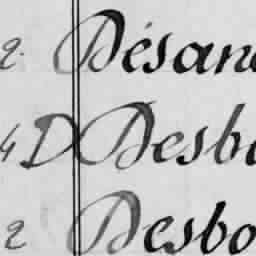 2. Désan
4 D Desb
2 Desbo